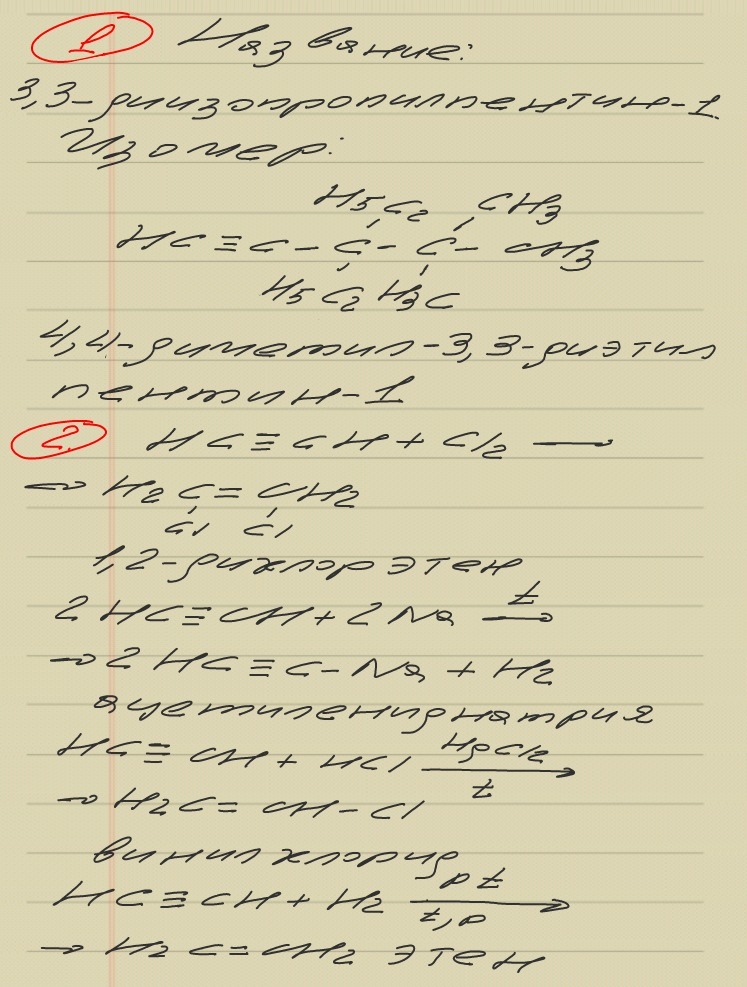 1 Название:
3,3-диизопропилпентин-1.
Изомер:
H5C2 CH3
HC≡C-C-C-CH3
H5C2 H3C
4,4-диметил-3,3-диэтил
пентин-1
2 HC≡CH+Cl2 →
→ H2C=CH2
Cl Cl
1,2-дихлорэтен
2HC≡CH+2Na t →
→ 2HC≡C-Na+H2
ацетиленид натрия
HC≡CH+HCl HgCl2 → t
→ H2C=CH-Cl
винилхлорид
HC≡CH+H2 pt → t,p
→ H2C=CH2 этен